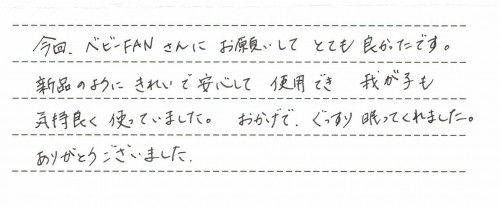 今回、ベビーFANさんに お願いして とても 良かったです。
新品のように きれいで安心して 使用でき 我が子も
気持良く 使っていました。 おかげで、ぐっすり 眠ってくれました。
ありがとうございました.